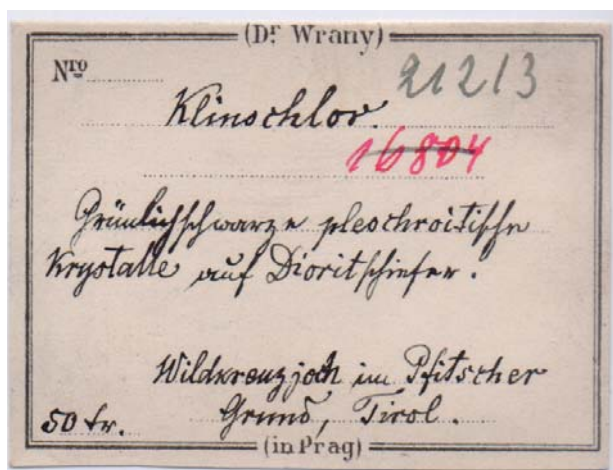 (Dr Wrany)
Nro
21213
Klinochlor.
16804
Grünlichschwarze pleochroitische
Krystalle auf Dioritschiefer.
Wildkreuzjoch im Pfitscher
Grund, Tirol.
50 kr.
(in Prag)